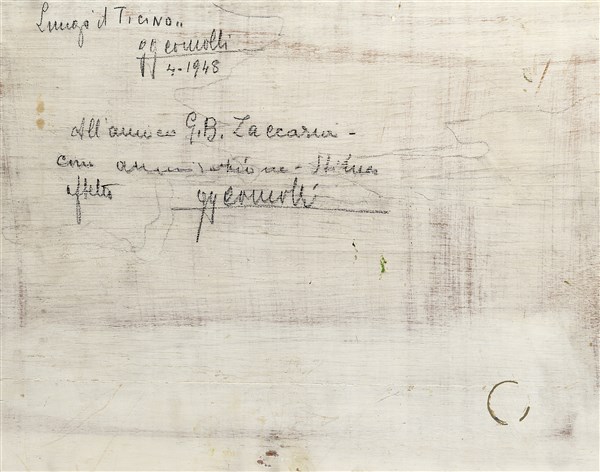 Lungo il Ticino..
gg comolli
4-1948
All'amico G.B. Zaccaria -
con ammirazione - Stima
affetto gg comolli